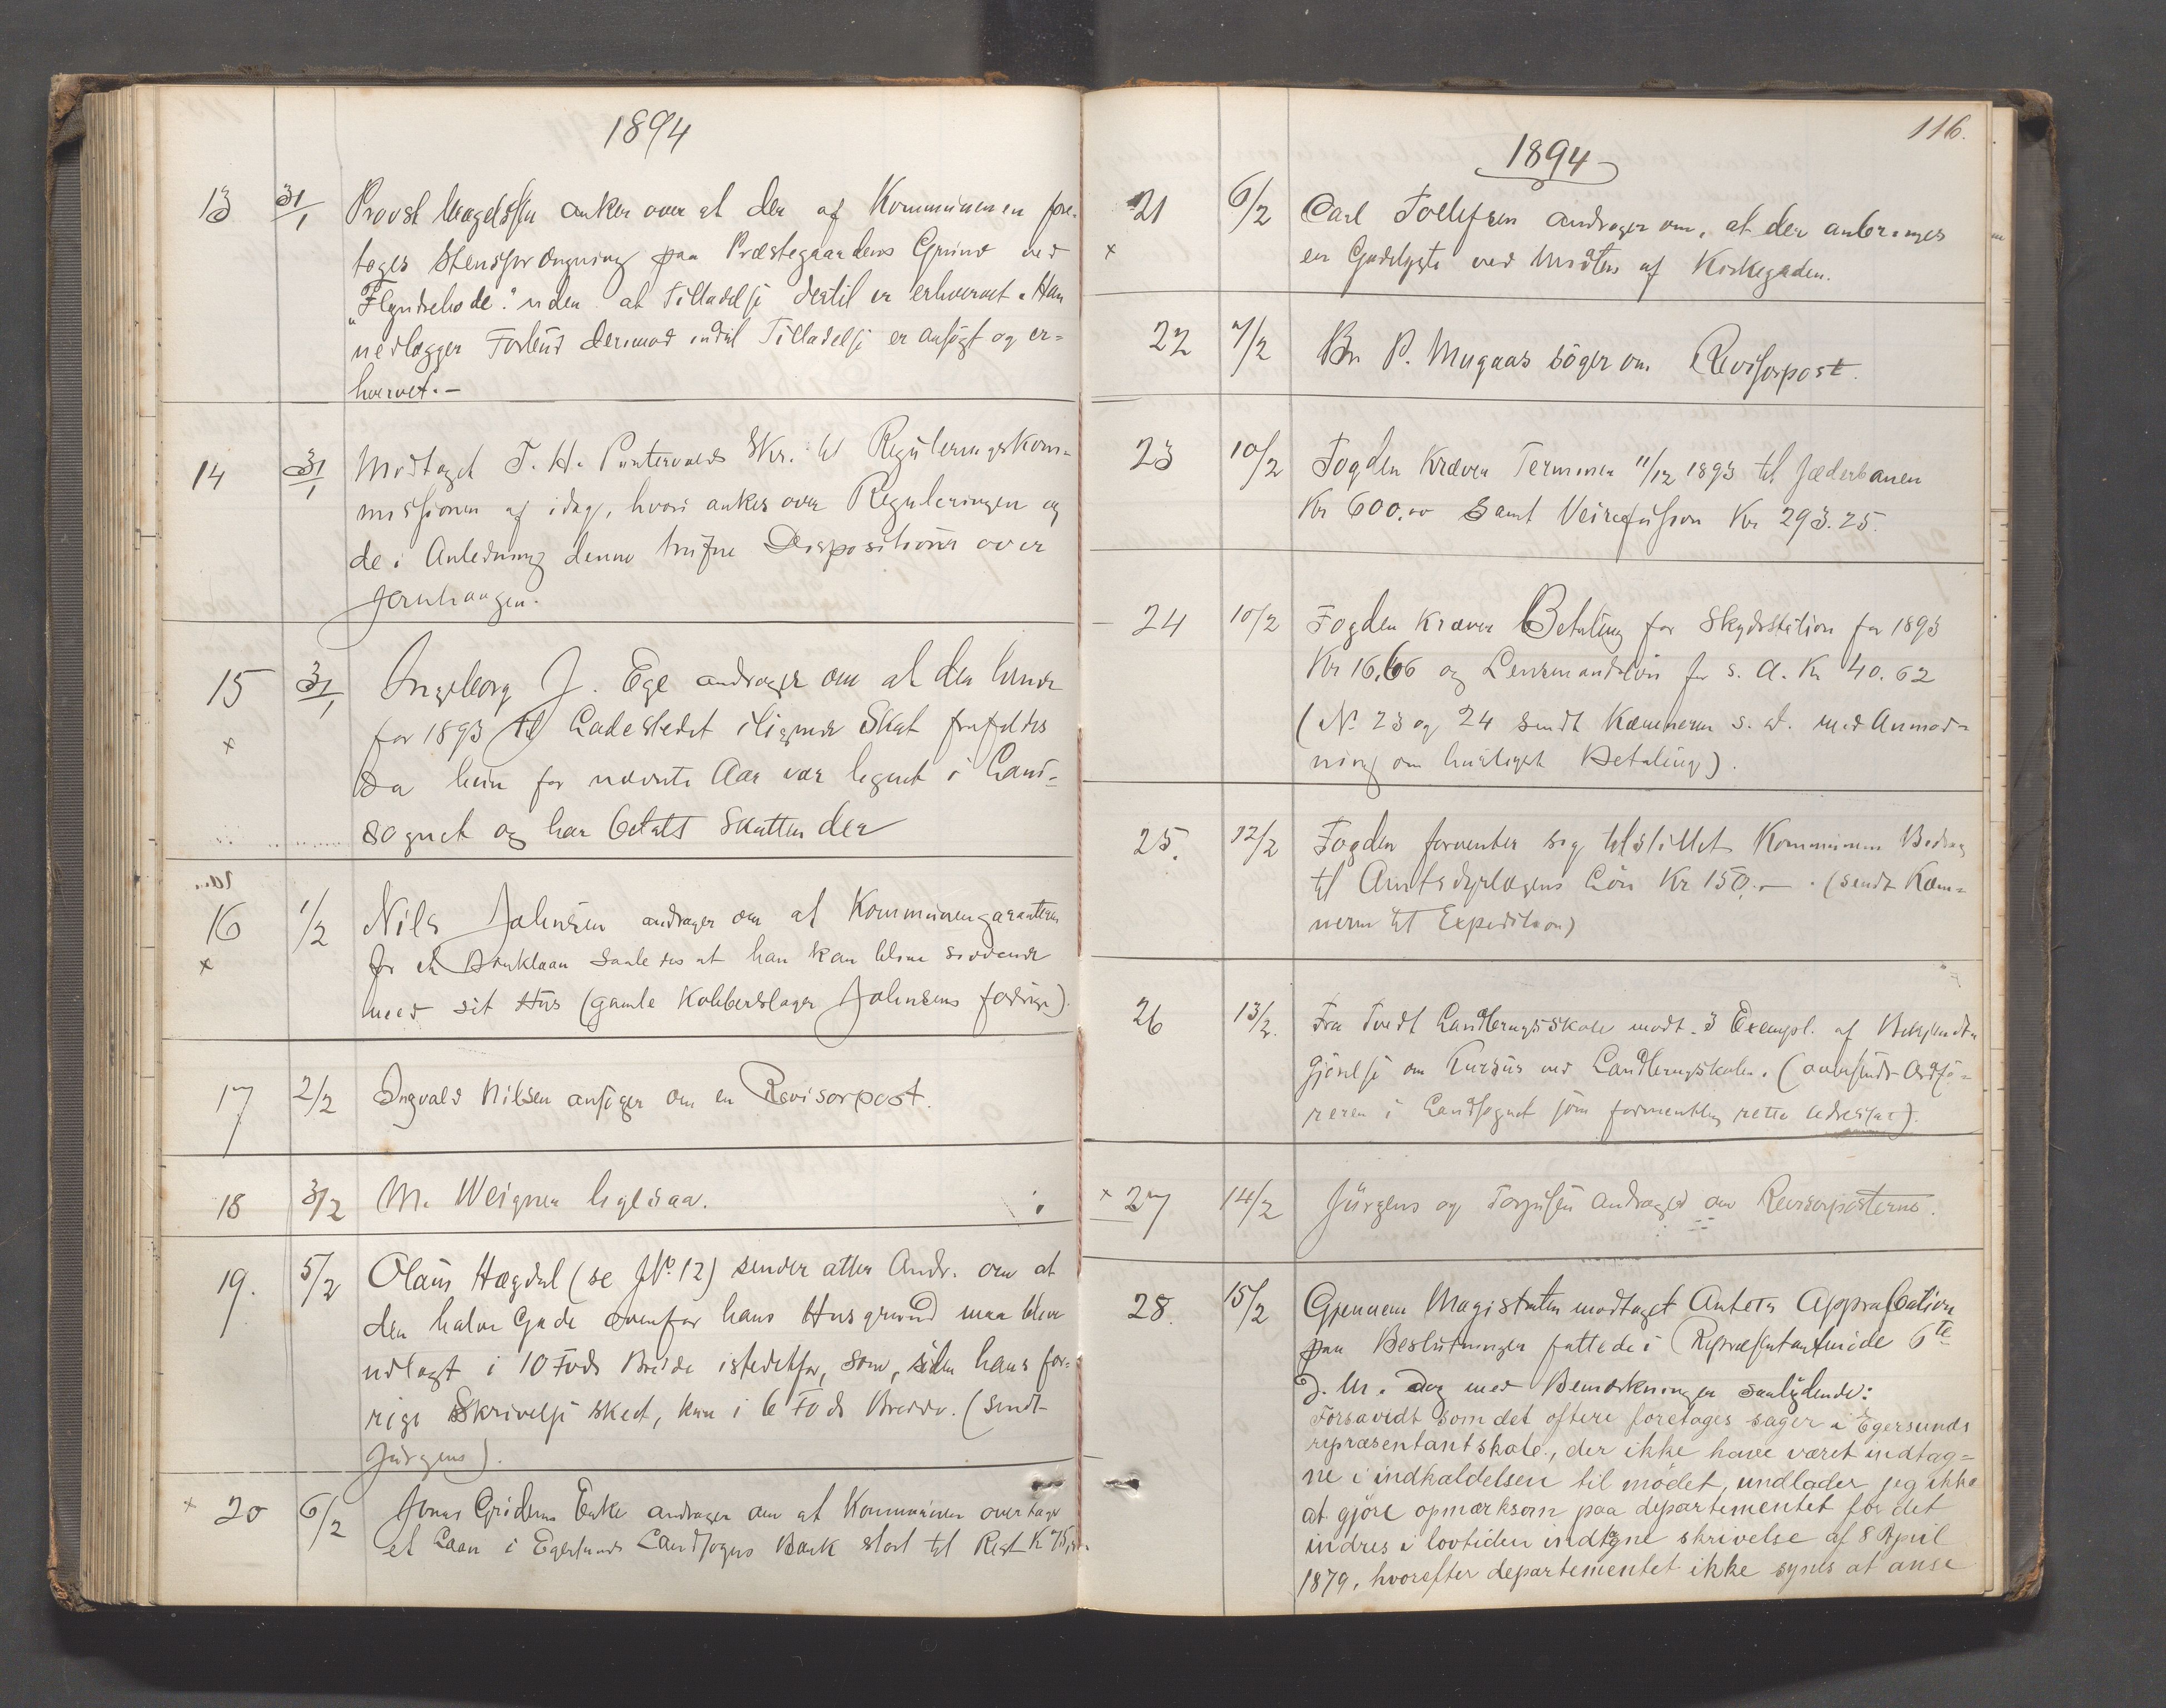 1894
13 31/1 Provst anker over at der af Kommunen fore-
tages Stensprængning paa Præstegaardens Grund ved
"Flyndrehode" uden at Tilladelse dertil er erhvervet. Han
nedlægger Forbud derimod indtil Tilladelse er ansøgt og er-
hvervet.-
14 31/1 Modtaget T. H. Puntervolds Skr. til Reguleringskom-
missionen af idag, hvori ankes over Reguleringen og
de i Anledning denne trufne Dispositioner over
Jernhaugen.
15 31/1 Ingeborg J. Ege andrager om at den hende
x for 1893 til Ladestedet ilignede Skat frafaldes
da hun for nævnte Aar var lignet i Land-
sognet og har betalt Skatten der
16 1/2 Nils Johnsen andrager om at Kommunen garanterer
x for et Banklaan saaledes at han kan blive siddende
med sit Hus (gamle Kobberslager Johnsens forrige).
17 2/2 Ingvald Nilsen ansøger om en Revisorpost.
18 3/2 M. Weigner ligesaa.
19. 5/2 Olaus Hægdal (se No 12) sender atter Andr. om at
den halve Gade ovenfor hans Husgrund maa blive
udlagt i 10 Fods Bredde istedetfor, som, siden hans for-
rige Skrivelse skeet, kun i 6 Fods Bredde. (sendt
Jürgens).
x 20 6/2 Jonas Gridems Enke andrager om at Kommunen overtager
et Laan i Egersunds Landsogns Bank stort til Rest Kr 75,
116.
1894
21 6/2 Carl Tollefsen andrager om, at der anbringes
x en Gadelygte ved Midten af Kirkegaden.
22 7/2 Br P. Mugaas söger om Revisorpost.
23 10/2 Fogden Kræver Terminen 11/12 1893 til Jæderbanen
Kr 600.00 samt Veirefusion Kr 293.25.
24 10/2 Fogden Kræver Betaling for Skydsstation for 1893
Kr 16.66 og Lensmandslön for s. A. Kr 40.62
(No 23 og 24 sendt Kæmneren s. D. med Anmod-
ning om hurtigst Betaling).
25. 12/2 Fogden forventer sig tilstillet Kommunens Bidrag
til Amtsdyrlægens Lön Kr 150.- . (sendt Kæm-
neren til Expedition)
26 13/2. Fra Tvedt Landbrugsskole modt. 3 Exempl. af Bekjendt-
gjörelse om Kursus ved Landbrugsskolen. (oversendt Ordfö-
reren i Landsognet som formentlig rette Adressat).
x 27 14/2 Jürgens og Torjusen andraget om Revisorposterne.
28. 15/2 Gjennem Magistraten modtaget Amtets Approbation
paa Beslutninger fattede i Repræsentantmöde 6te
d. M. dog med Bemærkninger saalydende:
Forsavidt som det oftere foretages sager i Egersunds
repræsentantskab, der ikke have været indtag-
ne i indkaldelsen til mödet, undlader jeg ikke
at gjöre opmærksom paa departementet for det
indres i lovtiden indtagne skrivelse af 8 April
1879, hvorefter departementet ikke synes at anse